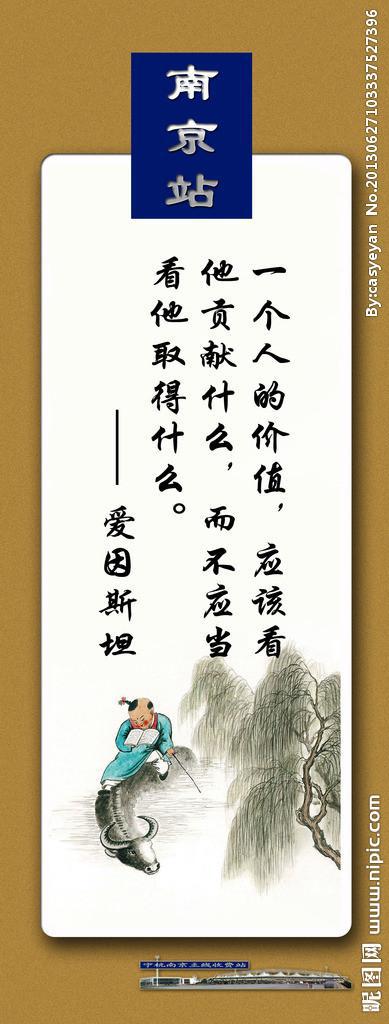 南京站
一个人的价值，应该看
他贡献什么，而不应当
看他取得什么。
——爱因斯坦
宁杭南京主线收费站
By:casyeyan No.20130627103337527396
昵图网 www.nipic.com